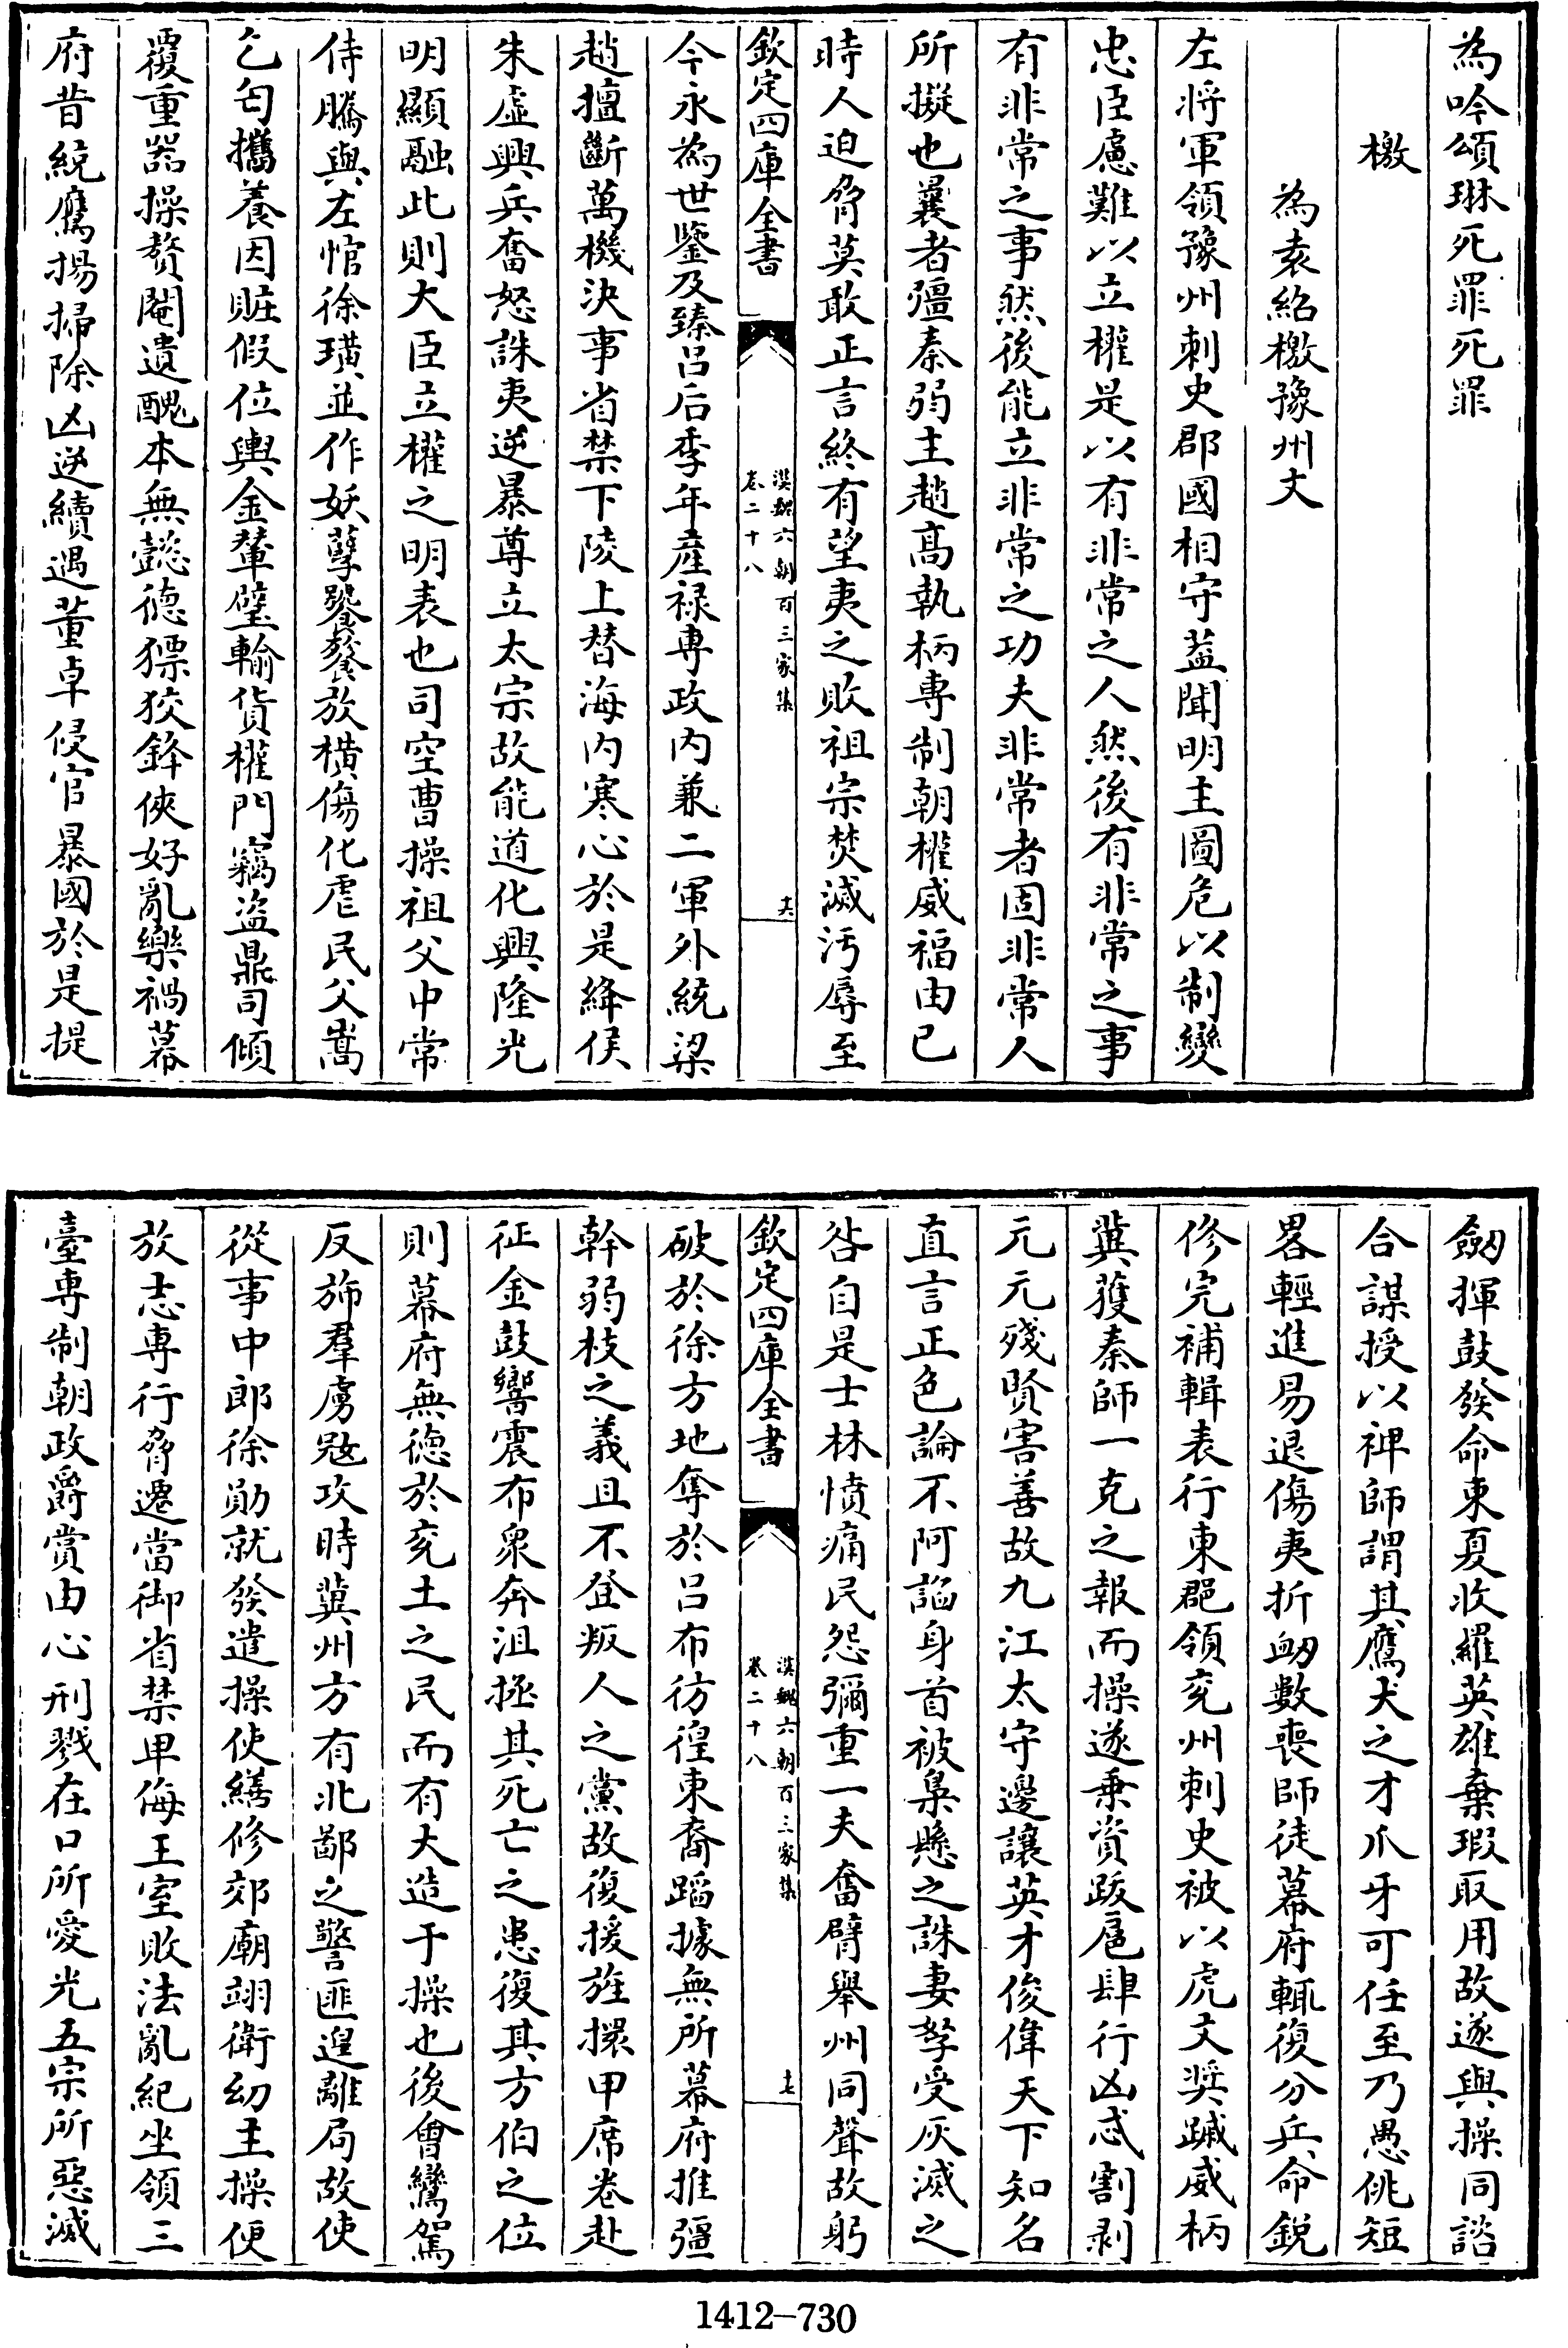 為吟頌琳死罪死罪
檄
為袁紹檄豫州文
左將軍領豫州刺史郡國相守蓋聞明主圖危以制變
忠臣慮難以立權是以有非常之人然後有非常之事
有非常之事然後能立非常之功夫非常者固非常人
所擬也曩者彊秦弱主趙高執柄専制朝權威福由已
時人迫脅莫敢正言終有望夷之敗祖宗焚滅汚辱至
欽定四庫全書
漢魏六朝百三家集
卷二十八
十六
今永為世鑒及臻吕后季年産禄専政内兼二軍外統梁
趙擅斷萬機決事省禁下陵上替海内寒心於是絳侯
朱虚興兵奮怒誅夷逆暴尊立太宗故能道化興隆光
明顯融此則大臣立權之明表也司空曹操祖父中常
侍騰與左悺徐璜並作妖孽饕餮放橫傷化虐民父嵩
乞匄攜養因贓假位輿金輦璧輸貨權門竊盜鼎司傾
覆重器操贅閹遺醜本無懿德獧狡鋒俠好亂樂禍幕
府昔統鷹揚掃除凶逆續遇董卓侵官暴國於是提
劔揮鼓發命東夏收羅英雄棄瑕取用故遂與操同諮
合謀授以裨師謂其鷹犬之才爪牙可任至乃愚佻短
畧輕進易退傷夷折衂數喪師徒幕府輒復分兵命銳
修完補輯表行東郡領兖州刺史被以虎文奬蹴威柄
冀獲秦師一克之報而操遂乗資跋扈肆行凶忒割剥
元元殘賢害善故九江太守邊讓英才俊偉天下知名
直言正色論不阿謟身首被梟懸之誅妻孥受灰滅之
咎自是士林憤痛民怨彌重一夫奮臂舉州同聲故躬
欽定四庫全書
漢魏六朝百三家集
卷二十八
十七
破於徐方地奪於吕布彷徨東裔蹈據無所幕府推彊
幹弱枝之義且不登叛人之黨故復援旌擐甲席卷赴
征金鼓響震布衆奔沮拯其死亡之患復其方伯之位
則幕府無徳於兖土之民而有大造于操也後會鸞駕
反斾羣虜冦攻時冀州方有北鄙之警匪遑離局故使
從事中郎徐勛就發遣操使繕修郊廟翊衛幼主操便
放志専行脅遷當御省禁卑侮王室敗法亂紀坐領三
臺専制朝政爵賞由心刑戮在口所愛光五宗所惡滅
1412-730